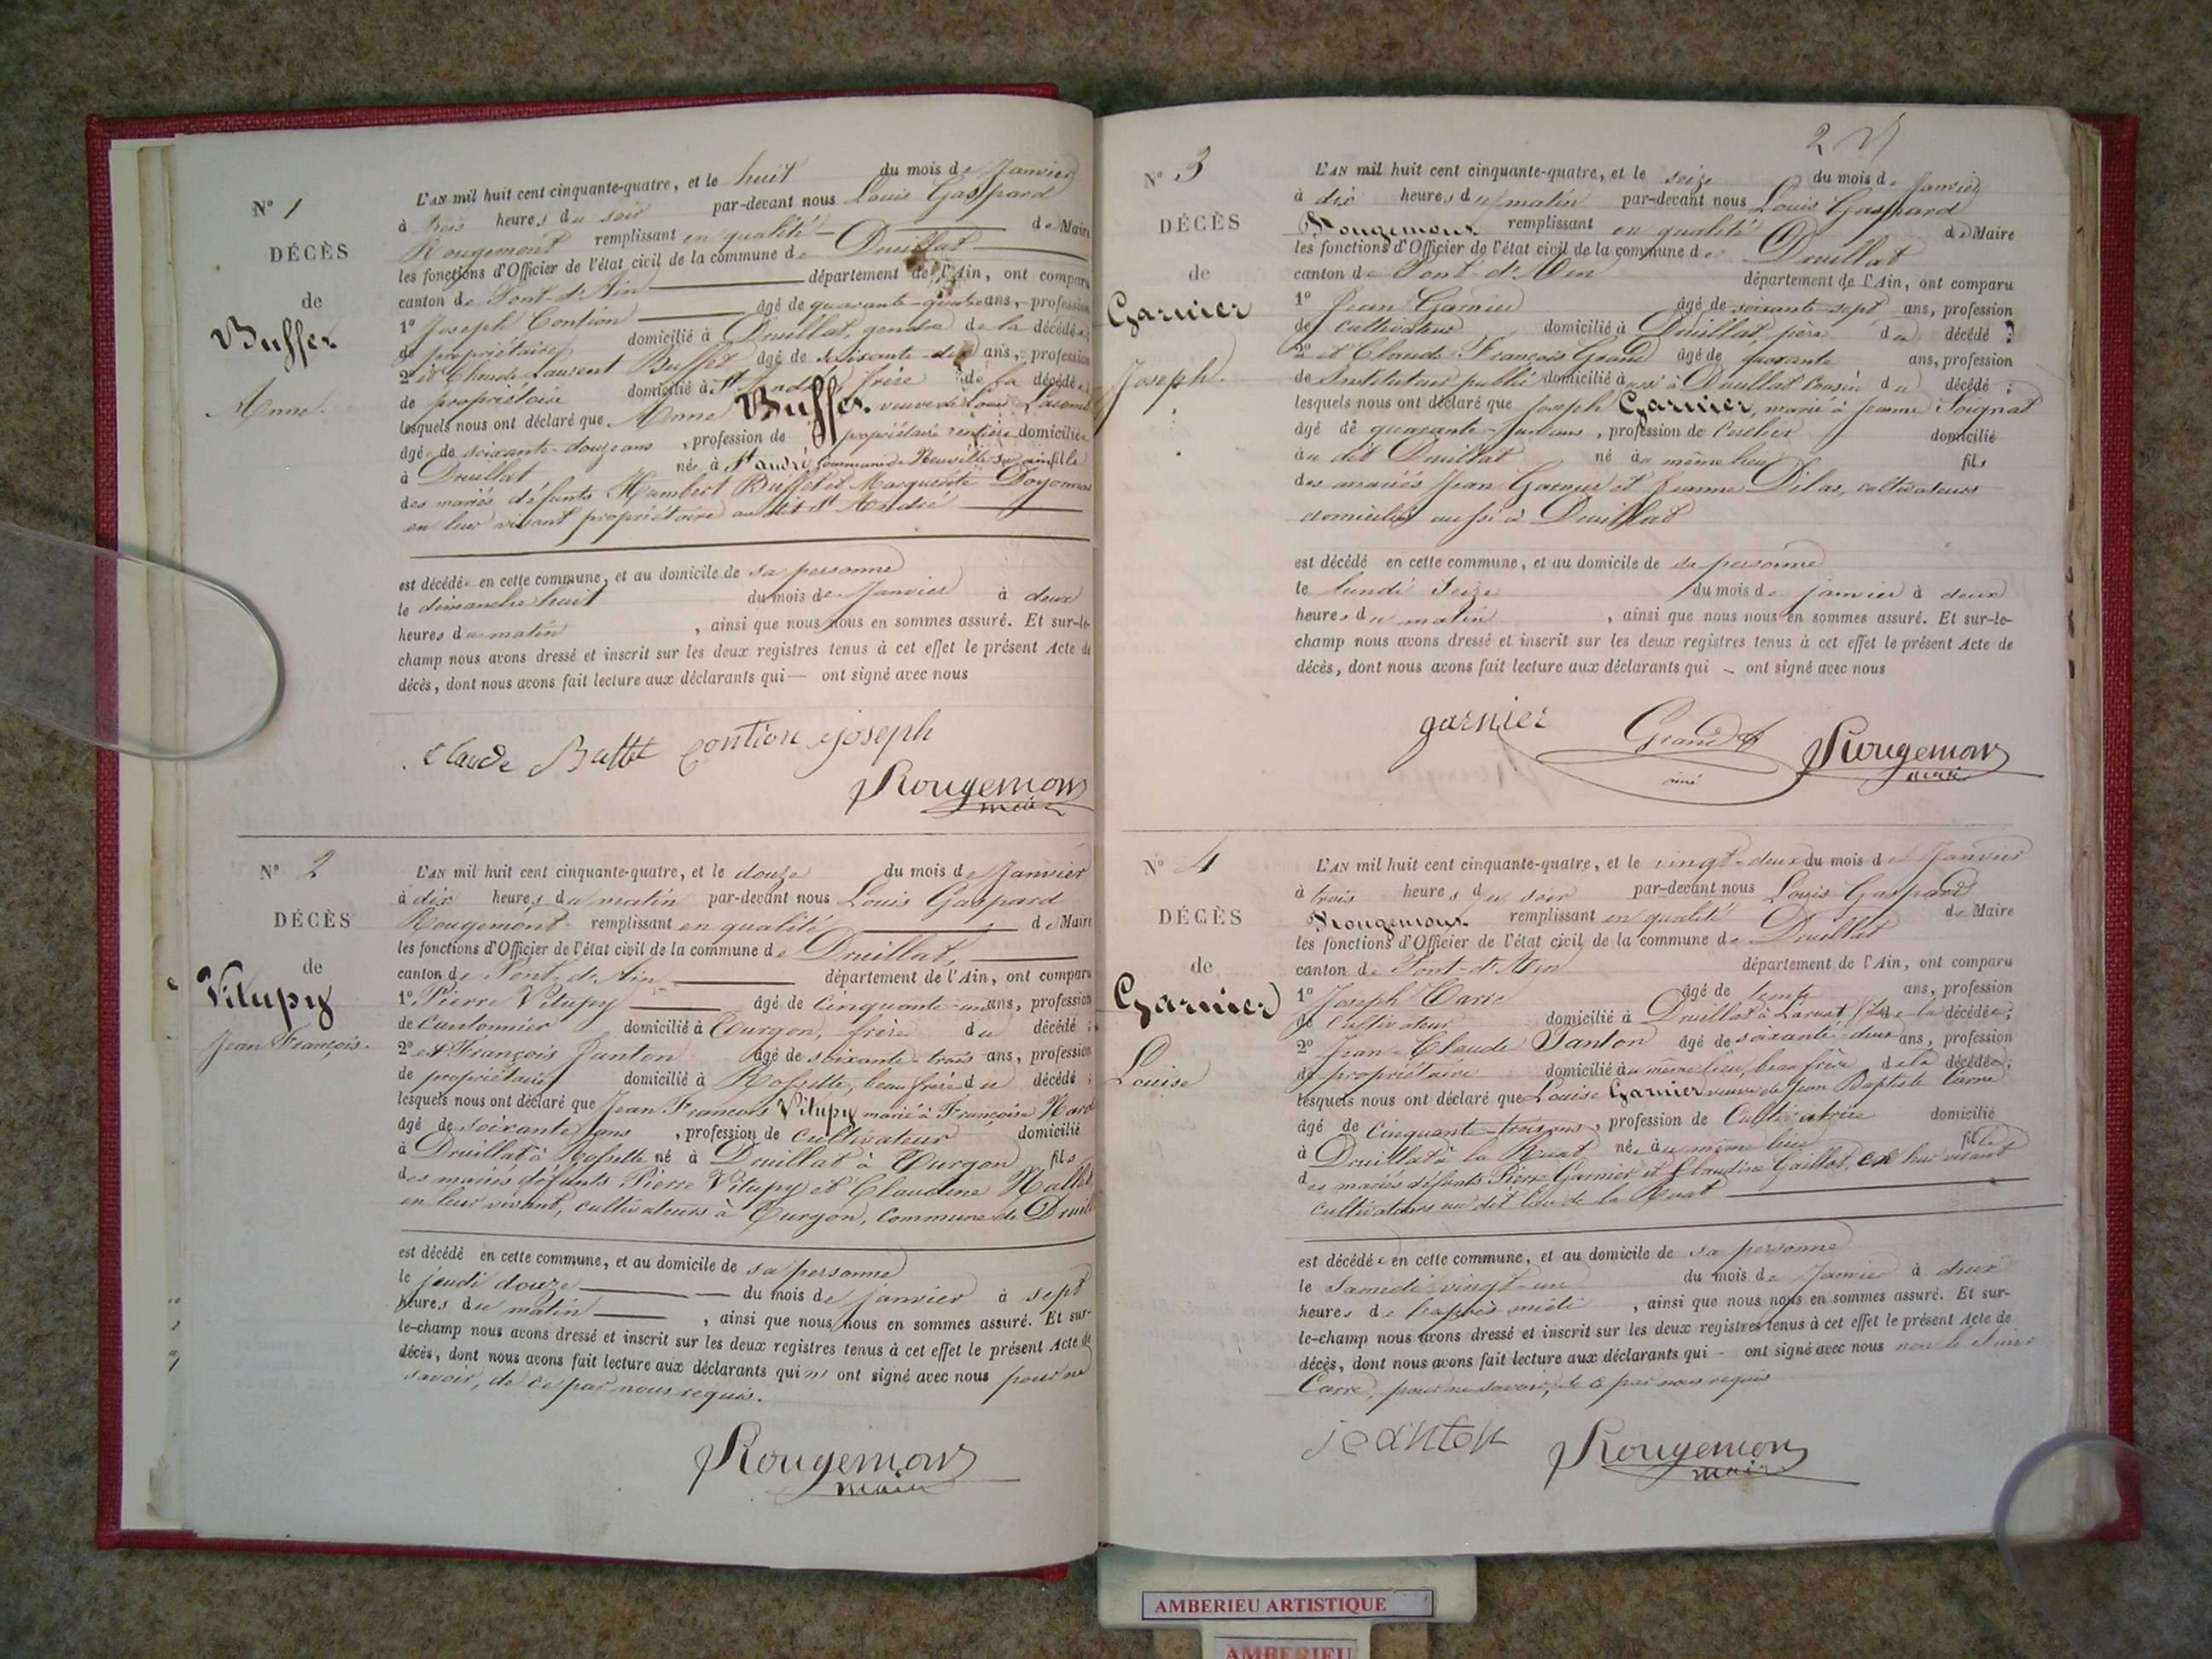 N° 1
DÉCÈS
de
Buffet
Anne.
L'AN mil huit cent cinquante-quatre, et le huit du mois de Janvier
à trois heures du soir par-devant nous Louis Gaspard
Rougemont remplissant en qualité de Maire
les fonctions d'Officier de l'état civil de la commune de Druillat
canton de Pont-d'Ain département de l'Ain, ont comparu
1° Joseph Contion âgé de quarante-quatre ans, profession
de propriétaire domicilié à Druillat, gendre de la décédée,
2° et Claude Laurent Buffet âgé de soixante-dix ans, profession
de propriétaire domicilié à St André, frère de la décédée
lesquels nous ont déclaré que Anne Buffet veuve de Louis
âgée de soixante-douze ans, profession de propriétaire rentière domiciliée
à Druillat née à St andré commune de Neuville sur ain fille
des mariés défunts Humbert Buffet et Marguerite Doyonnas
en leur vivant propriétaire au dit St André
est décédée en cette commune, et au domicile de sa personne
le dimanche huit du mois de Janvier à deux
heures du matin, ainsi que nous nous en sommes assuré. Et sur-le-
champ nous avons dressé et inscrit sur les deux registres tenus à cet effet le présent Acte de
décès, dont nous avons fait lecture aux déclarants qui — ont signé avec nous
Claude Buffet contion joseph
Rougemont
maire
N° 2
DÉCÈS
de
Vitupy
Jean François.
L'AN mil huit cent cinquante-quatre, et le douze du mois de Janvier
à dix heures du matin par-devant nous Louis Gaspard
Rougemont remplissant en qualité de Maire
les fonctions d'Officier de l'état civil de la commune de Druillat,
canton de Pont-d'Ain département de l'Ain, ont comparu
1° Pierre Vitupy âgé de cinquante-un ans, profession
de Cantonnier domicilié à Turgon, frère du décédé;
2° et François Janton âgé de soixante-trois ans, profession
de propriétaire domicilié à Rossette, beau frère du décédé;
lesquels nous ont déclaré que Jean François Vitupy marié à Françoise
âgé de soixante ans, profession de cultivateur domicilié
à Druillat à Rossette né à Druillat à Turgon fils
des mariés défunts Pierre Vitupy et Claudine
en leur vivant, cultivateurs à Turgon, commune de Druillat
est décédé en cette commune, et au domicile de sa personne
le jeudi douze du mois de janvier à sept
heures du matin, ainsi que nous nous en sommes assuré. Et sur-
le-champ nous avons dressé et inscrit sur les deux registres tenus à cet effet le présent Acte de
décès, dont nous avons fait lecture aux déclarants qui n'ont signé avec nous pour ne
savoir, de ce par nous requis.
Rougemont
maire
2
N° 3
DÉCÈS
de
Garnier
Joseph.
L'AN mil huit cent cinquante-quatre, et le seize du mois de Janvier
à dix heures du matin par-devant nous Louis Gaspard
Rougemont remplissant en qualité de Maire
les fonctions d'Officier de l'état civil de la commune de Druillat
canton de Pont-d'Ain département de l'Ain, ont comparu
1° Jean Garnier âgé de soixante-sept ans, profession
de cultivateur domicilié à Druillat, père du décédé;
2° et Claude François Grand âgé de quarante ans, profession
de Instituteur public domicilié aussi à Druillat cousin du décédé;
lesquels nous ont déclaré que Joseph Garnier, marié à Jeanne Soignat
âgé de quarante- ans, profession de domicilié
au dit Druillat né au même lieu fils
des mariés Jean Garnier et Jeanne Dilas, cultivateurs
domiciliés aussi à Druillat
est décédé en cette commune, et au domicile de sa personne
le lundi seize du mois de janvier à deux
heures du matin, ainsi que nous nous en sommes assuré. Et sur-le-
champ nous avons dressé et inscrit sur les deux registres tenus à cet effet le présent Acte de
décès, dont nous avons fait lecture aux déclarants qui — ont signé avec nous
garnier Grand Rougemont
maire
N° 4
DÉCÈS
de
Garnier
Louise
L'AN mil huit cent cinquante-quatre, et le vingt-deux du mois de Janvier
à trois heures du soir par-devant nous Louis Gaspard
Rougemont remplissant en qualité de Maire
les fonctions d'Officier de l'état civil de la commune de Druillat
canton de Pont-d'Ain département de l'Ain, ont comparu
1° Joseph Carre âgé de trente ans, profession
de cultivateur domicilié à Druillat à fils de la décédée;
2° Jean-Claude Janton âgé de soixante-deux ans, profession
de propriétaire domicilié au même lieu, beau frère de la décédée;
lesquels nous ont déclaré que Louise Garnier veuve de Jean Baptiste Carre
âgé de cinquante-trois ans, profession de Cultivatrice domicilié
à Druillat à la Ruat née au même lieu fille
des mariés défunts Pierre Garnier et Claudine Gaillot, en leur vivant
cultivateurs au dit lieu de la Ruat
est décédée en cette commune, et au domicile de sa personne
le Samedi vingt-un du mois de Janvier à deux
heures de l'après midi, ainsi que nous nous en sommes assuré. Et sur-
le-champ nous avons dressé et inscrit sur les deux registres tenus à cet effet le présent Acte de
décès, dont nous avons fait lecture aux déclarants qui - ont signé avec nous non le
Carre, pour ne savoir, de ce par nous requis
jeanton Rougemont
maire
AMBERIEU ARTISTIQUE
AMBERIEU